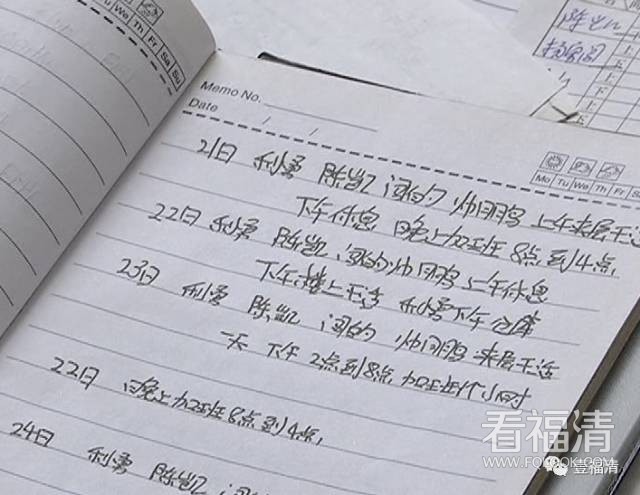 Memo No.
Date / /
Mo Tu We Th Fr
21日 利勇 陈凯 闻的 帅同鹏 上午来层干活
下午休息 晚上加班 8点到4点,
22日 利勇 陈凯 闻的 帅同鹏 上午休息
下午楼上干活 利勇下午仓库
23日 利勇 陈凯 闻的 帅同鹏 来层干活
一天 下午 2点到8点 加班1个小时
22日 晚上加班8点到4点,
24日 利勇 陈凯
We Th Fr Sa Su
陈凯
上
下
上
下
上
看福清
FQLOOK.COM
壹福清